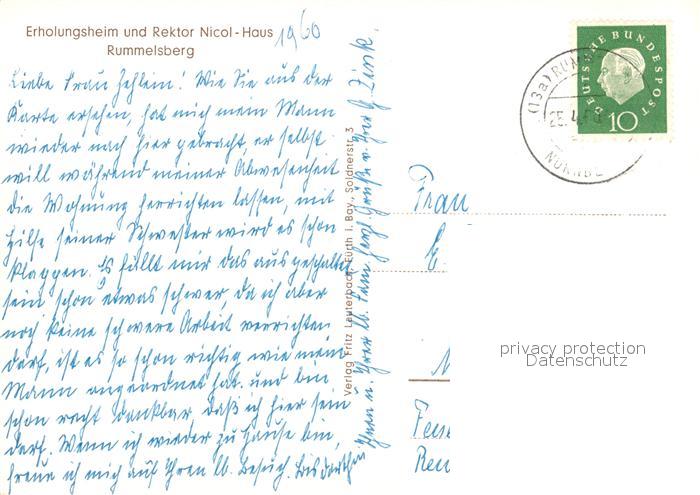 Erholungsheim und Rektor Nicol-Haus
Rummelsberg
1960
Liebe Frau Zehlein! Wie Sie aus der
Karte ersehen, hat mich mein Mann
wieder nach hier gebracht, er selbst
will während meiner Abwesenheit
die Wohnung herrichten lassen, mit
Hilfe seiner Schwester wird es schon
klappen. Es fällt mir das ausgeschaltet
sein schon etwas schwer, da ich aber
noch keine schwere Arbeit verrichten
darf, ist es so schon richtig wie mein
Mann angeordnet hat. und bin
schon recht dankbar daß ich hier sein
darf. Wenn ich wieder zu Hause bin,
freue ich mich auf Ihren lb. Besuch. Bis dorthin
Ihnen u. Ihrer lb. Fam herzl Grüße v. Ihrer G. Zink.
Verlag Fritz Lauterbach, Fürth i. Bay., Soldnerstr. 3
DEUTSCHE BUNDESPOST
10
(13a) RUM
25.4.60
NÜRNBE
Frau
E.
N
Ren
privacy protection
Datenschutz